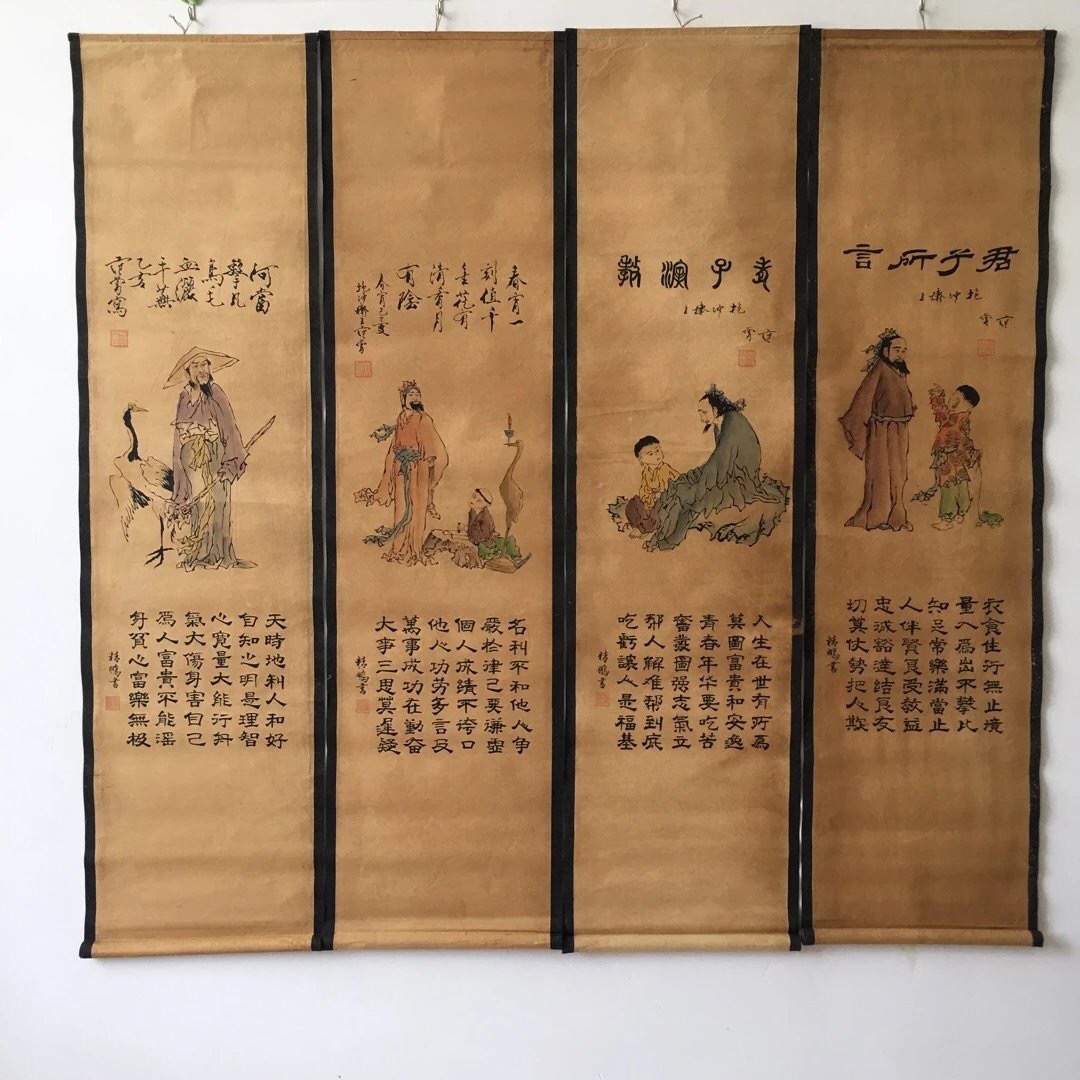 君子所言
范曾
衣食住行無止境
量入爲出不攀比
知足常樂滿當止
人伴賢良受教益
忠誠豁達結良友
切莫仗勢把人欺
精鵬書
老子演教
范曾
人生在世有所爲
莫圖富貴和安逸
青春年华要吃苦
奮發圖强志氣立
帮人解难帮到底
吃虧讓人是福基
精鵬書
春宵一
刻值千
金花有
清香月
有陰
春宵己亥
范曾
名利不和他人争
嚴於律己要謙虚
個人成績不誇口
他人功劳多言及
萬事成功在勤奋
大事三思莫遲疑
精鵬書
何當
擊凡
鳥毛
血灑
平蕪
乙亥
范曾寫
天時地利人和好
自知之明是理智
心宽量大能行舟
氣大傷身害自己
爲人富貴不能淫
身貧心富樂無極
精鵬書